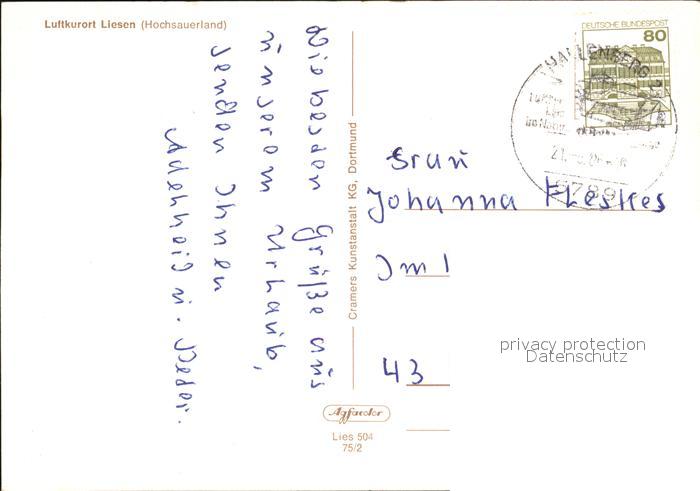 Luftkurort Liesen (Hochsauerland)
Die besten Grüße aus
unserem Urlaub,
senden Ihnen
Adelheid u. Peter.
Cramers Kunstanstalt KG, Dortmund
DEUTSCHE BUNDESPOST
80
HALLENBERG
5789
Frau
Johanna Fleskes
Im 1
43
privacy protection
Datenschutz
Agfacolor
Lies 504
75/2